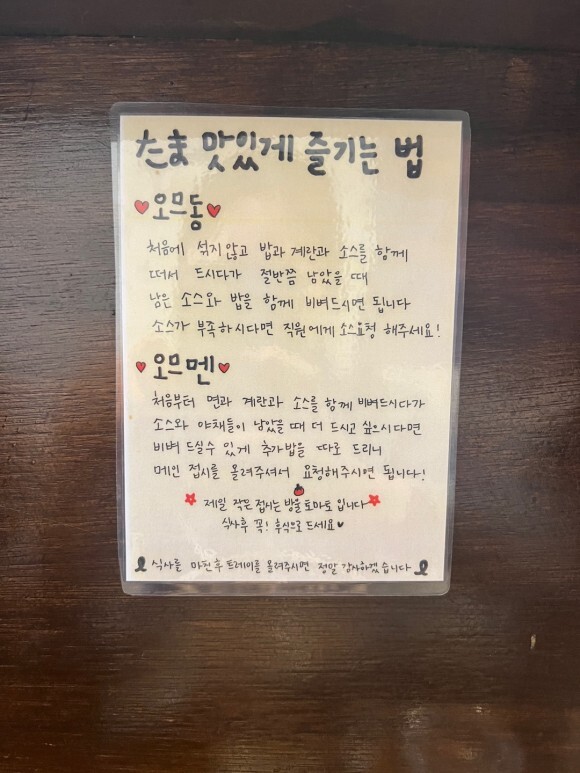 たま 맛있게 즐기는 법
오므동
처음에 섞지않고 밥과 계란과 소스를 함께
떠서 드시다가 절반쯤 남았을 때
남은 소스와 밥을 함께 비벼드시면 됩니다
소스가 부족하시다면 직원에게 소스요청 해주세요!
오므멘
처음부터 면과 계란과 소스를 함께 비벼드시다가
소스와 야채들이 남았을 때 더 드시고 싶으시다면
비벼 드실수 있게 추가밥을 따로 드리니
메인 접시를 올려주셔서 요청해주시면 됩니다!
제일 작은 접시는 방울토마토 입니다
식사후 꼭! 후식으로 드세요
식사를 마친후 트레이를 올려주시면 정말 감사하겠습니다